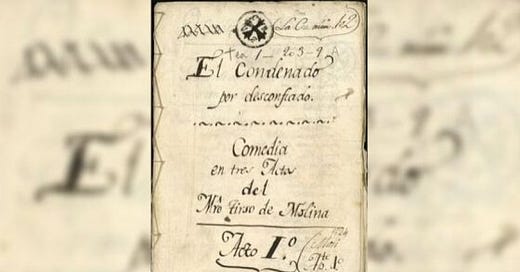 Tea 1-203-9, A
El Condenado
por desconfiado.
Comedia
en tres Actos
del
Mro Tirso de Molina
Acto I.º